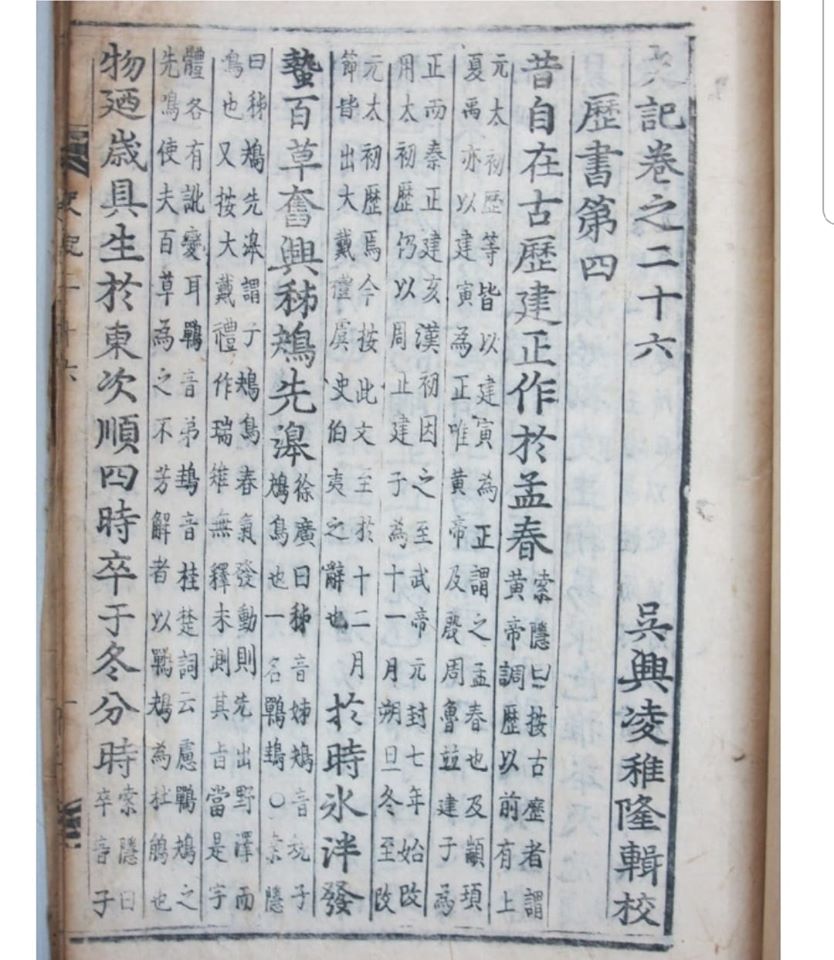 史記卷之二十六
吳興凌稚隆輯校
歷書第四
昔自在古歷建正作於孟春
索隱曰按古歷者謂
黃帝調歷以前有上
元太初歷等皆以建寅為正謂之孟春也及顓頊
夏禹亦以建寅為正唯黃帝及殷周魯並建子為
正而秦正建亥漢初因之至武帝元封七年始改
用太初歷仍以周正建子為十一月朔旦冬至改
元太初歷焉今按此文至於十二月
節皆出大戴禮虞史伯夷之辭也
於時氷泮發
蟄百草奮興秭鳺先滜
徐廣曰秭音姊鳺音規子
鳺鳥也一名鷤鴂○索隱
曰秭鳺先滜謂子鳺鳥春氣發動則先出野澤而
鳴也又按大戴禮作瑞雉無釋未測其旨當是字
體各有訛變耳鷤音弟鴂音桂楚詞云慮鷤鳺之
先鳴使夫百草為之不芳解者以鷤鳺為杜鵑也
物廼歲具生於東次順四時卒于冬分時
索隱曰
卒音子